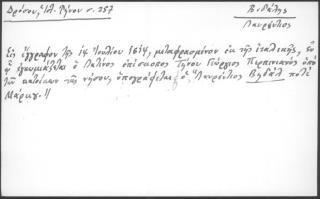 Δρόσου, Ἱστ. Τήνου σ. 257
Βιδάλης
Λαυρέντιος
Εἰς ἔγγραφον τῆς 14 Ἰουλίου 1614, μεταφρασμένον ἐκ τῆς ἰταλικῆς, ἐν
ᾧ ἐγκωμιάζεται ὁ Λατῖνος ἐπίσκοπος Τήνου Γεώργιος Περπινιανὸς ὑπὸ
τῶν κατοίκων τῆς νήσου, ὑπογράφεται ὁ "Λαυρέντιος Βηδάλ ποτὲ
Μάρκου."